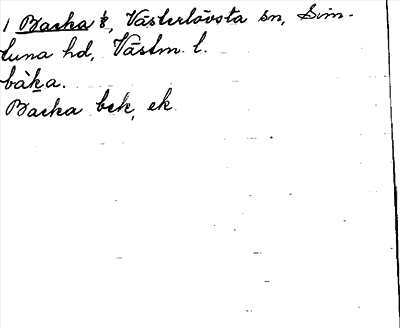 1 Backa, Västerlövsta sn, Sim-
tuna hd, Västm. l.
bàka.
Backa bek, ek